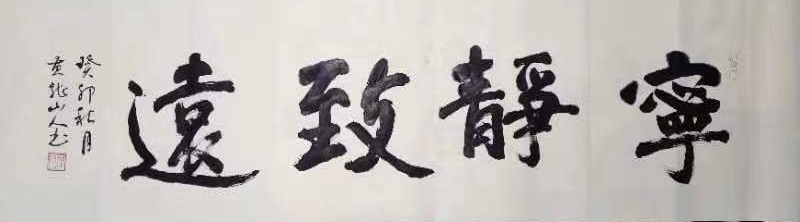 寧靜致遠
癸卯秋月
黄龍山人书